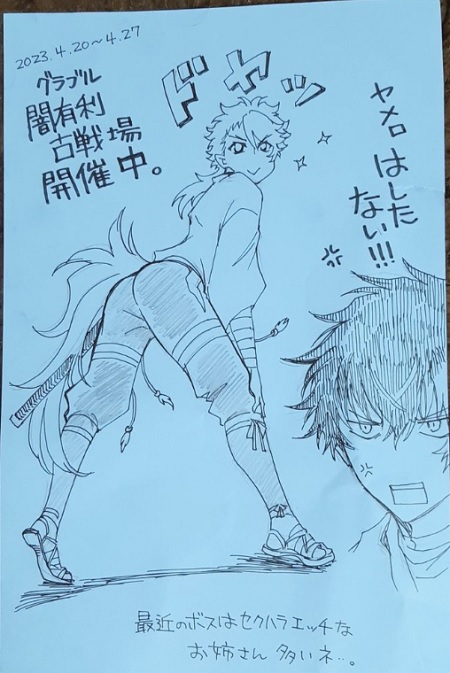 2023.4.20~4.27
グラブル
闇有利
古戦場
開催中。
ドヤッ
ヤメロ はした
ない!!!
最近のボスはセクハラエッチな
お姉さん 多いネ…。